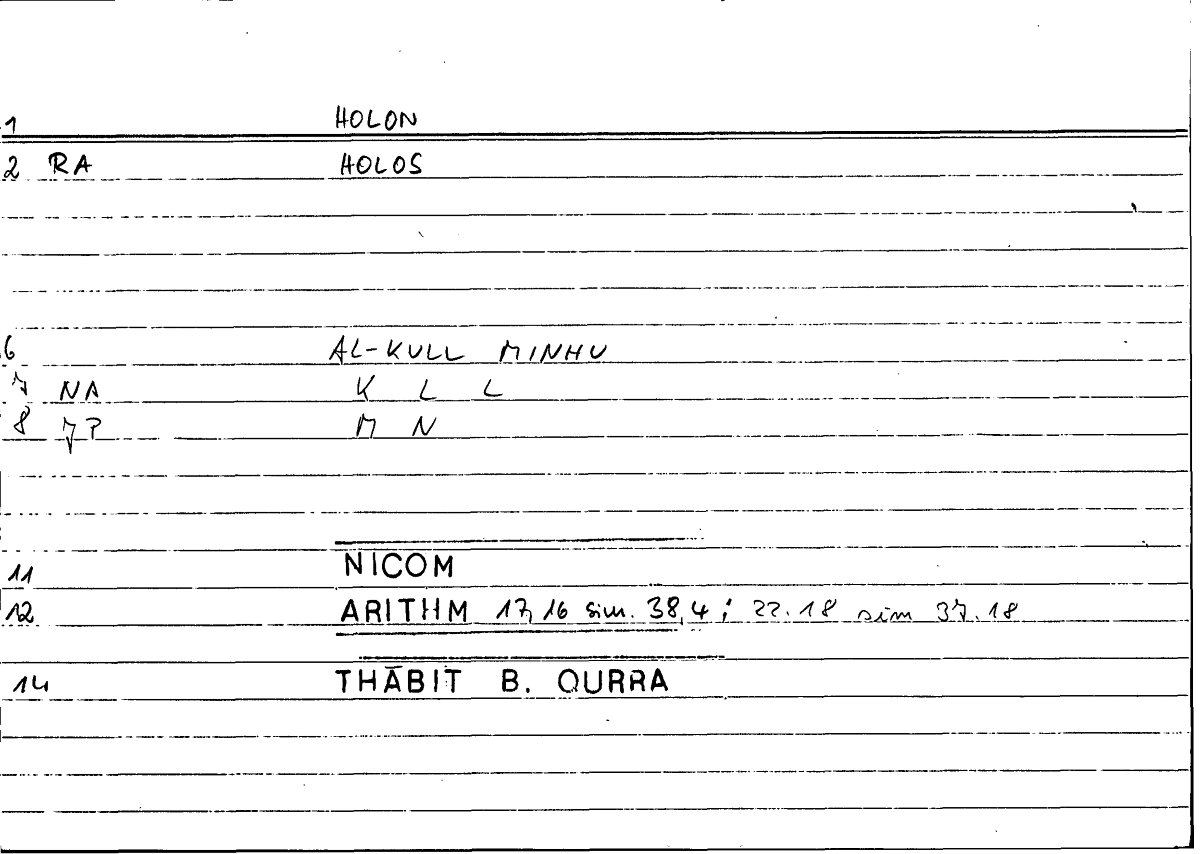 1 HOLON
2 RA HOLOS
6 AL-KULL MINHU
7 NA K L L
8 7? M N
11 NICOM
12 ARITHM 17,16 sim. 38,4; 22.18 sim 37.18
14 THĀBIT B. QURRA